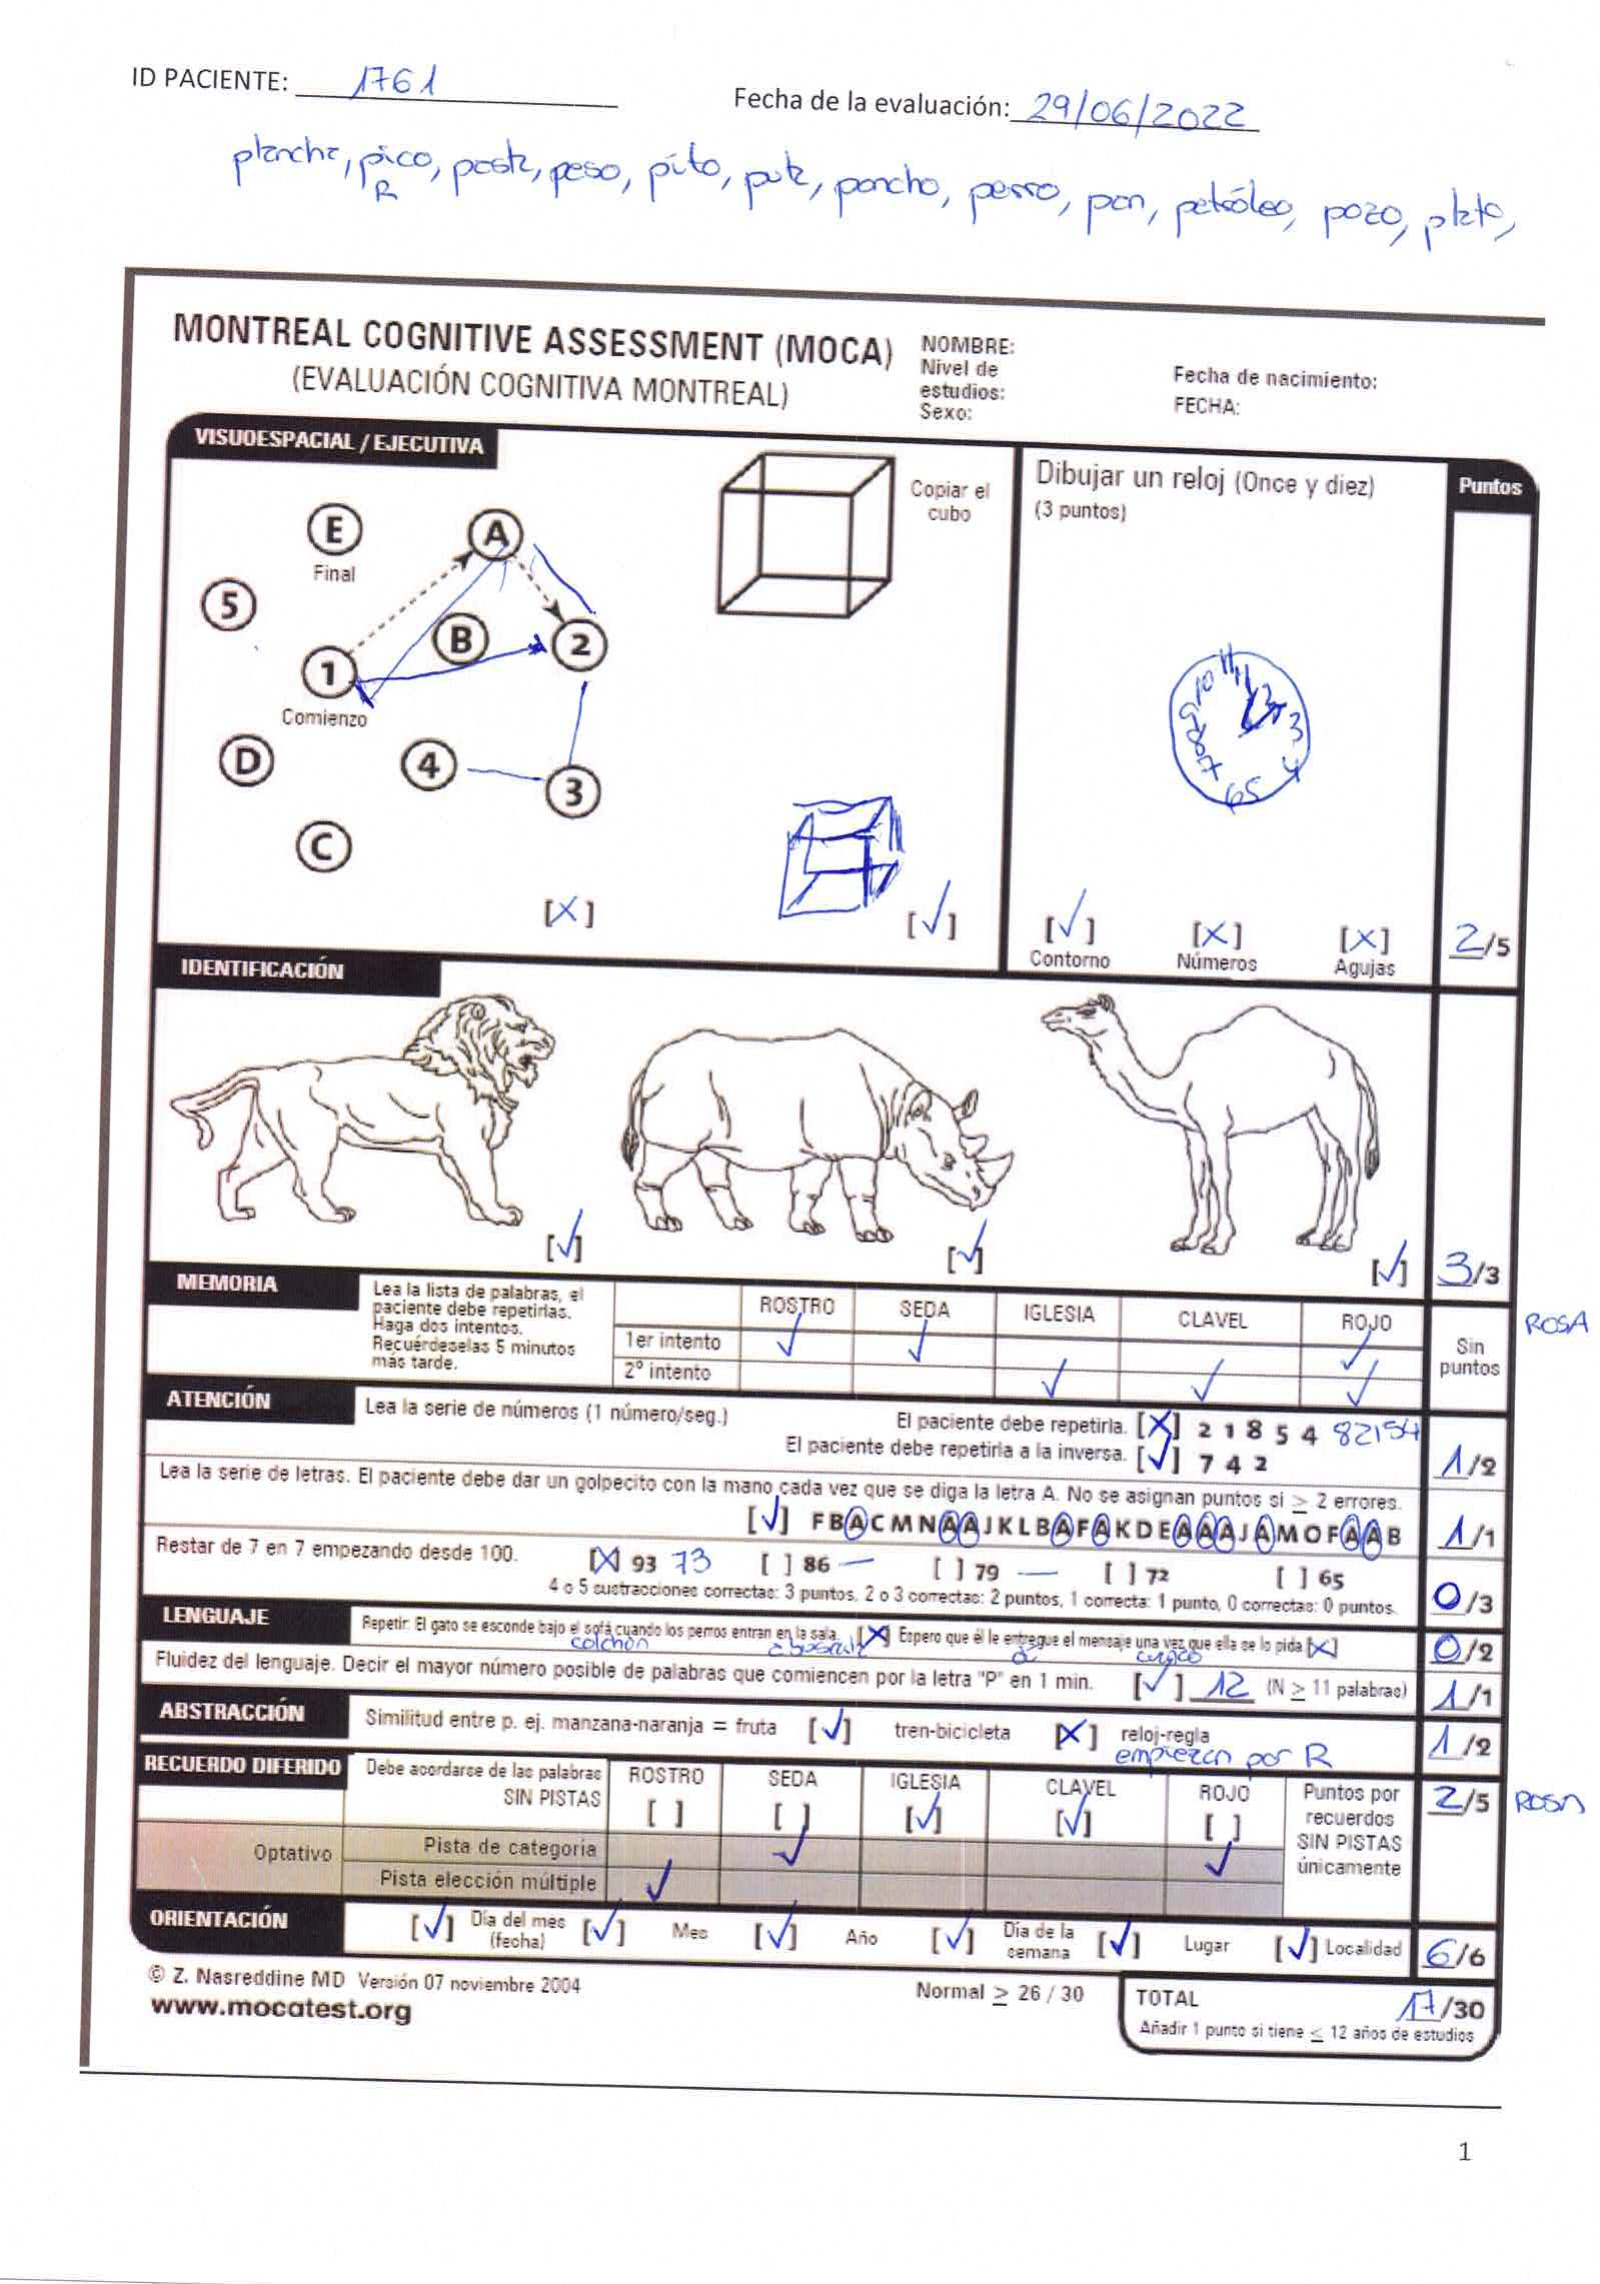 ID PACIENTE: 1761
Fecha de la evaluación: 29/06/2022
plancha, pico, poste, peso, pito, puta, poncho, perro, pan, petróleo, pozo, plato,
R
MONTREAL COGNITIVE ASSESSMENT (MOCA)
(EVALUACIÓN COGNITIVA MONTREAL)
NOMBRE:
Nivel de
estudios:
Sexo:
Fecha de nacimiento:
FECHA:
VISUOESPACIAL / EJECUTIVA
E
Final
A
5
B
2
1
Comienzo
D
4
3
C
[X]
Copiar el
cubo
[✓]
Dibujar un reloj (Once y diez)
(3 puntos)
[✓] [X] [X]
Contorno Números Agujas
Puntos
2/5
IDENTIFICACIÓN
[✓] [✓] [✓] 3/3
MEMORIA
Lea la lista de palabras, el
paciente debe repetirlas.
Haga dos intentos.
Recuérdeselas 5 minutos
más tarde.
ROSTRO SEDA IGLESIA CLAVEL ROJO
1er intento ✓ ✓ ✓
2º intento ✓ ✓ ✓
Sin
puntos
ROSA
ATENCIÓN
Lea la serie de números (1 número/seg.)
El paciente debe repetirla. [X] 2 1 8 5 4 82154
El paciente debe repetirla a la inversa. [✓] 7 4 2
1/2
Lea la serie de letras. El paciente debe dar un golpecito con la mano cada vez que se diga la letra A. No se asignan puntos si ≥ 2 errores.
[✓] F B A C M N A A J K L B A F A K D E A A A J A M O F A A B 1/1
Restar de 7 en 7 empezando desde 100. [X] 93 73 [ ] 86 — [ ] 79 — [ ] 72 [ ] 65
4 o 5 sustracciones correctas: 3 puntos, 2 o 3 correctas: 2 puntos, 1 correcta: 1 punto, 0 correctas: 0 puntos. 0/3
LENGUAJE
Repetir: El gato se esconde bajo el sofá cuando los perros entran en la sala. [X] Espero que él le entregue el mensaje una vez que ella se lo pida [X] 0/2
colchón
Fluidez del lenguaje. Decir el mayor número posible de palabras que comiencen por la letra "P" en 1 min. [✓] 12 (N ≥ 11 palabras) 1/1
ABSTRACCIÓN
Similitud entre p. ej. manzana-naranja = fruta [✓] tren-bicicleta [X] reloj-regla 1/2
empiezan por R
RECUERDO DIFERIDO
Debe acordarse de las palabras
SIN PISTAS
ROSTRO SEDA IGLESIA CLAVEL ROJO
[ ] [ ] [✓] [✓] [ ]
Puntos por
recuerdos
SIN PISTAS
únicamente
2/5 ROSA
Optativo
Pista de categoria ✓ ✓
Pista elección múltiple ✓
ORIENTACIÓN
[✓] Día del mes (fecha) [✓] Mes [✓] Año [✓] Día de la semana [✓] Lugar [✓] Localidad 6/6
© Z. Nasreddine MD Versión 07 noviembre 2004
www.mocatest.org
Normal ≥ 26 / 30
TOTAL 17/30
Añadir 1 punto si tiene ≤ 12 años de estudios
1